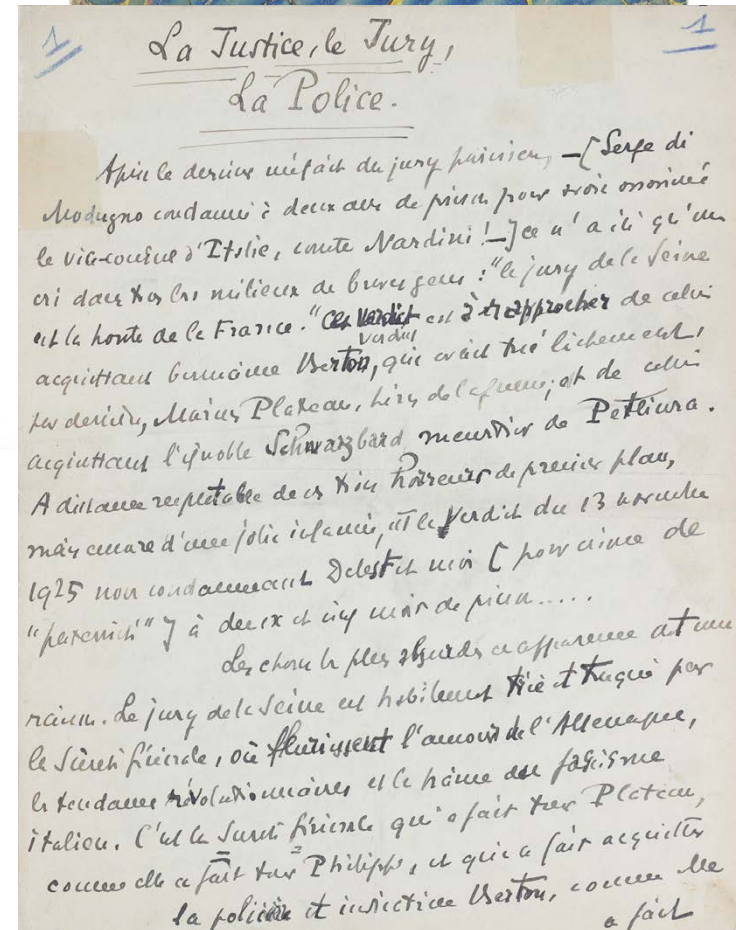 1
1
La Justice, le Jury,
La Police.
Après le dernier méfait du jury parisien, — [Serge di
Modugno condamné à deux ans de prison pour avoir assassiné
le vice-consul d'Italie, comte Nardini! —] ce n'a été qu'un
cri dans tous les milieux de braves gens : "le jury de la Seine
est la honte de la France." Ce verdict est à rapprocher de celui
verdict
acquittant Germaine Berton, qui avait tué lâchement,
par derrière, Marius Plateau, héros de la guerre; et de celui
acquittant l'ignoble Schwarzbard meurtrier de Petliura.
A distance respectable de ces trois horreurs de premier plan,
mais encore d'une jolie infamie, est le verdict du 13 novembre
1925 nous condamnant Delest et moi [pour crime de
"paternité"] à deux et cinq mois de prison.....
Les choses les plus absurdes en apparence ont une
raison. Le jury de la Seine est habilement trié et truqué par
la Sûreté générale, où fleurissent l'amour de l'Allemagne,
les tendances révolutionnaires et la haine du fascisme
italien. C'est la Sûreté générale qui a fait tuer Plateau,
comme elle a fait tuer Philippe, et qui a fait acquitter
la policière et indicatrice Berton, comme elle
a fait